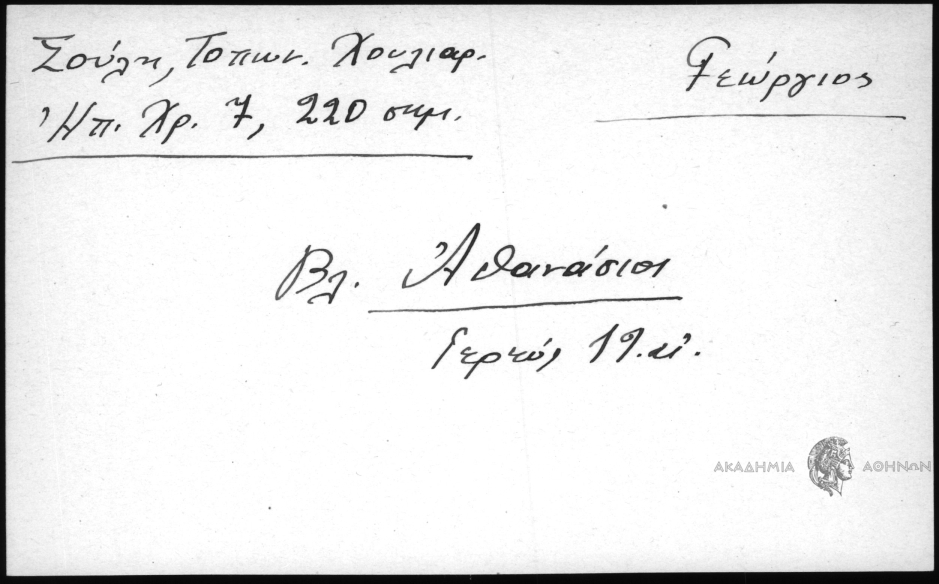 Σούλη, Τοπων. Χουλιαρ.
Ἠπ. Χρ. 7, 220 σημ.
Γεώργιος
Βλ. Ἀθανάσιος
ἱερεύς 19. αἰ.
ΑΚΑΔΗΜΙΑ ΑΘΗΝΩΝ